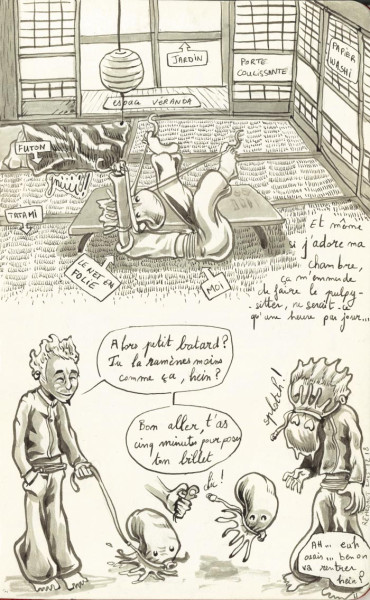 JARDIN
PORTE
COULISSANTE
PAPIER
WASHI
ESPACE VERANDA
FUTON
TATAMI
LE NET EN
FOLIE
MOI
Et même
si j'adore ma
chambre,
ça m'emmerde
de faire le pulpy-
-sitter, ne serait-ce
qu'une heure par jour...
Alors petit batard?
Tu la ramènes moins
comme ça, hein?
Bon aller, t'as
cinq minutes pour poser
ton billet
clic!
splotch!
AH... euh
ouais... ben on
va rentrer
hein?